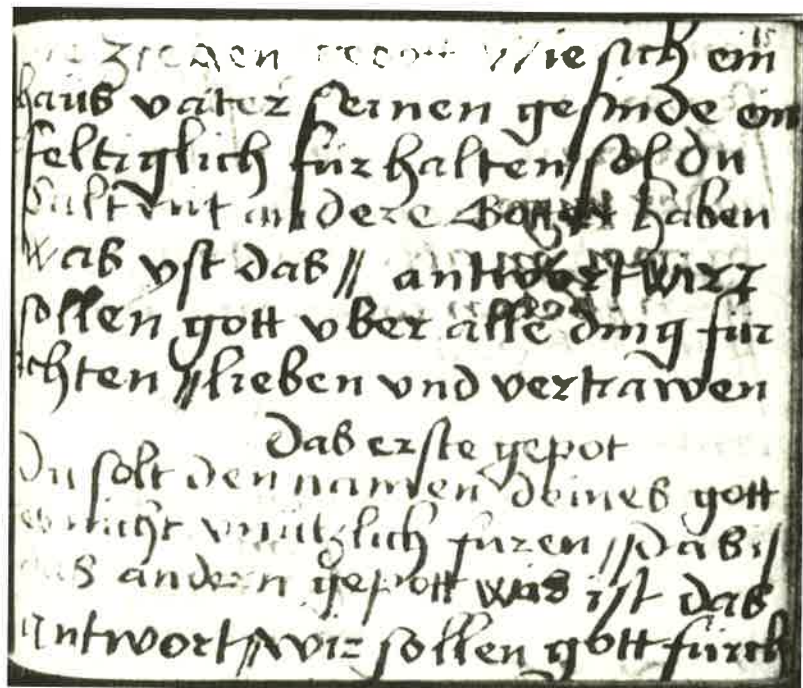 die Zehen gepott wie sich ein
haus vater seinen gesinde ein
feltiglich fürhalten sol du
Sult nit andere Gotter haben
was yst das // antwort wirr
sollen gott vber alle ding für
chten // lieben vnd vertrawen
Das erste gepot
Du solt den namen deines gott
es nicht vnnützlich furen // Das is
das andern gepott was ist das
Antwort // wir sollen gott fürch